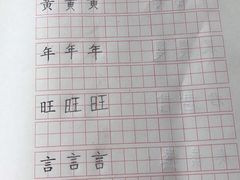 黄 黄 黄
年 年 年
旺 旺 旺
言 言 言